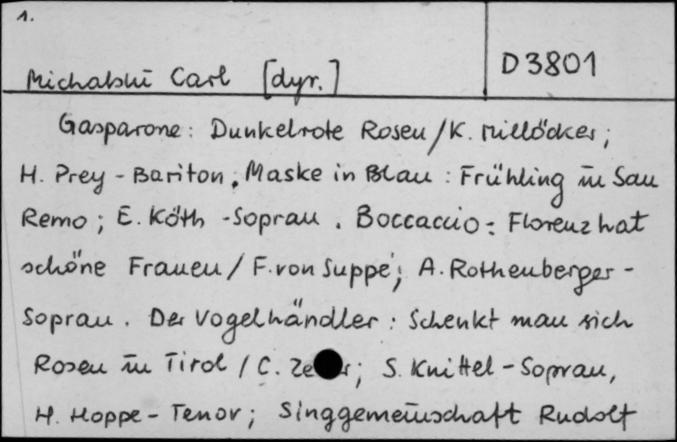 1.
Michalski Carl [dyr.]
D 3801
Gasparone: Dunkelrote Rosen / K. Millöcker;
H. Prey - Bariton. Maske in Blau: Frühling in San
Remo; E. Köth - Sopran. Boccaccio: Florenz hat
schöne Frauen / F. von Suppé; A. Rothenberger -
Sopran. Der Vogelhändler: Schenkt man sich
Rosen in Tirol / C. ; S. Knittel - Sopran,
H. Hoppe - Tenor; Singgemeinschaft Rudolf